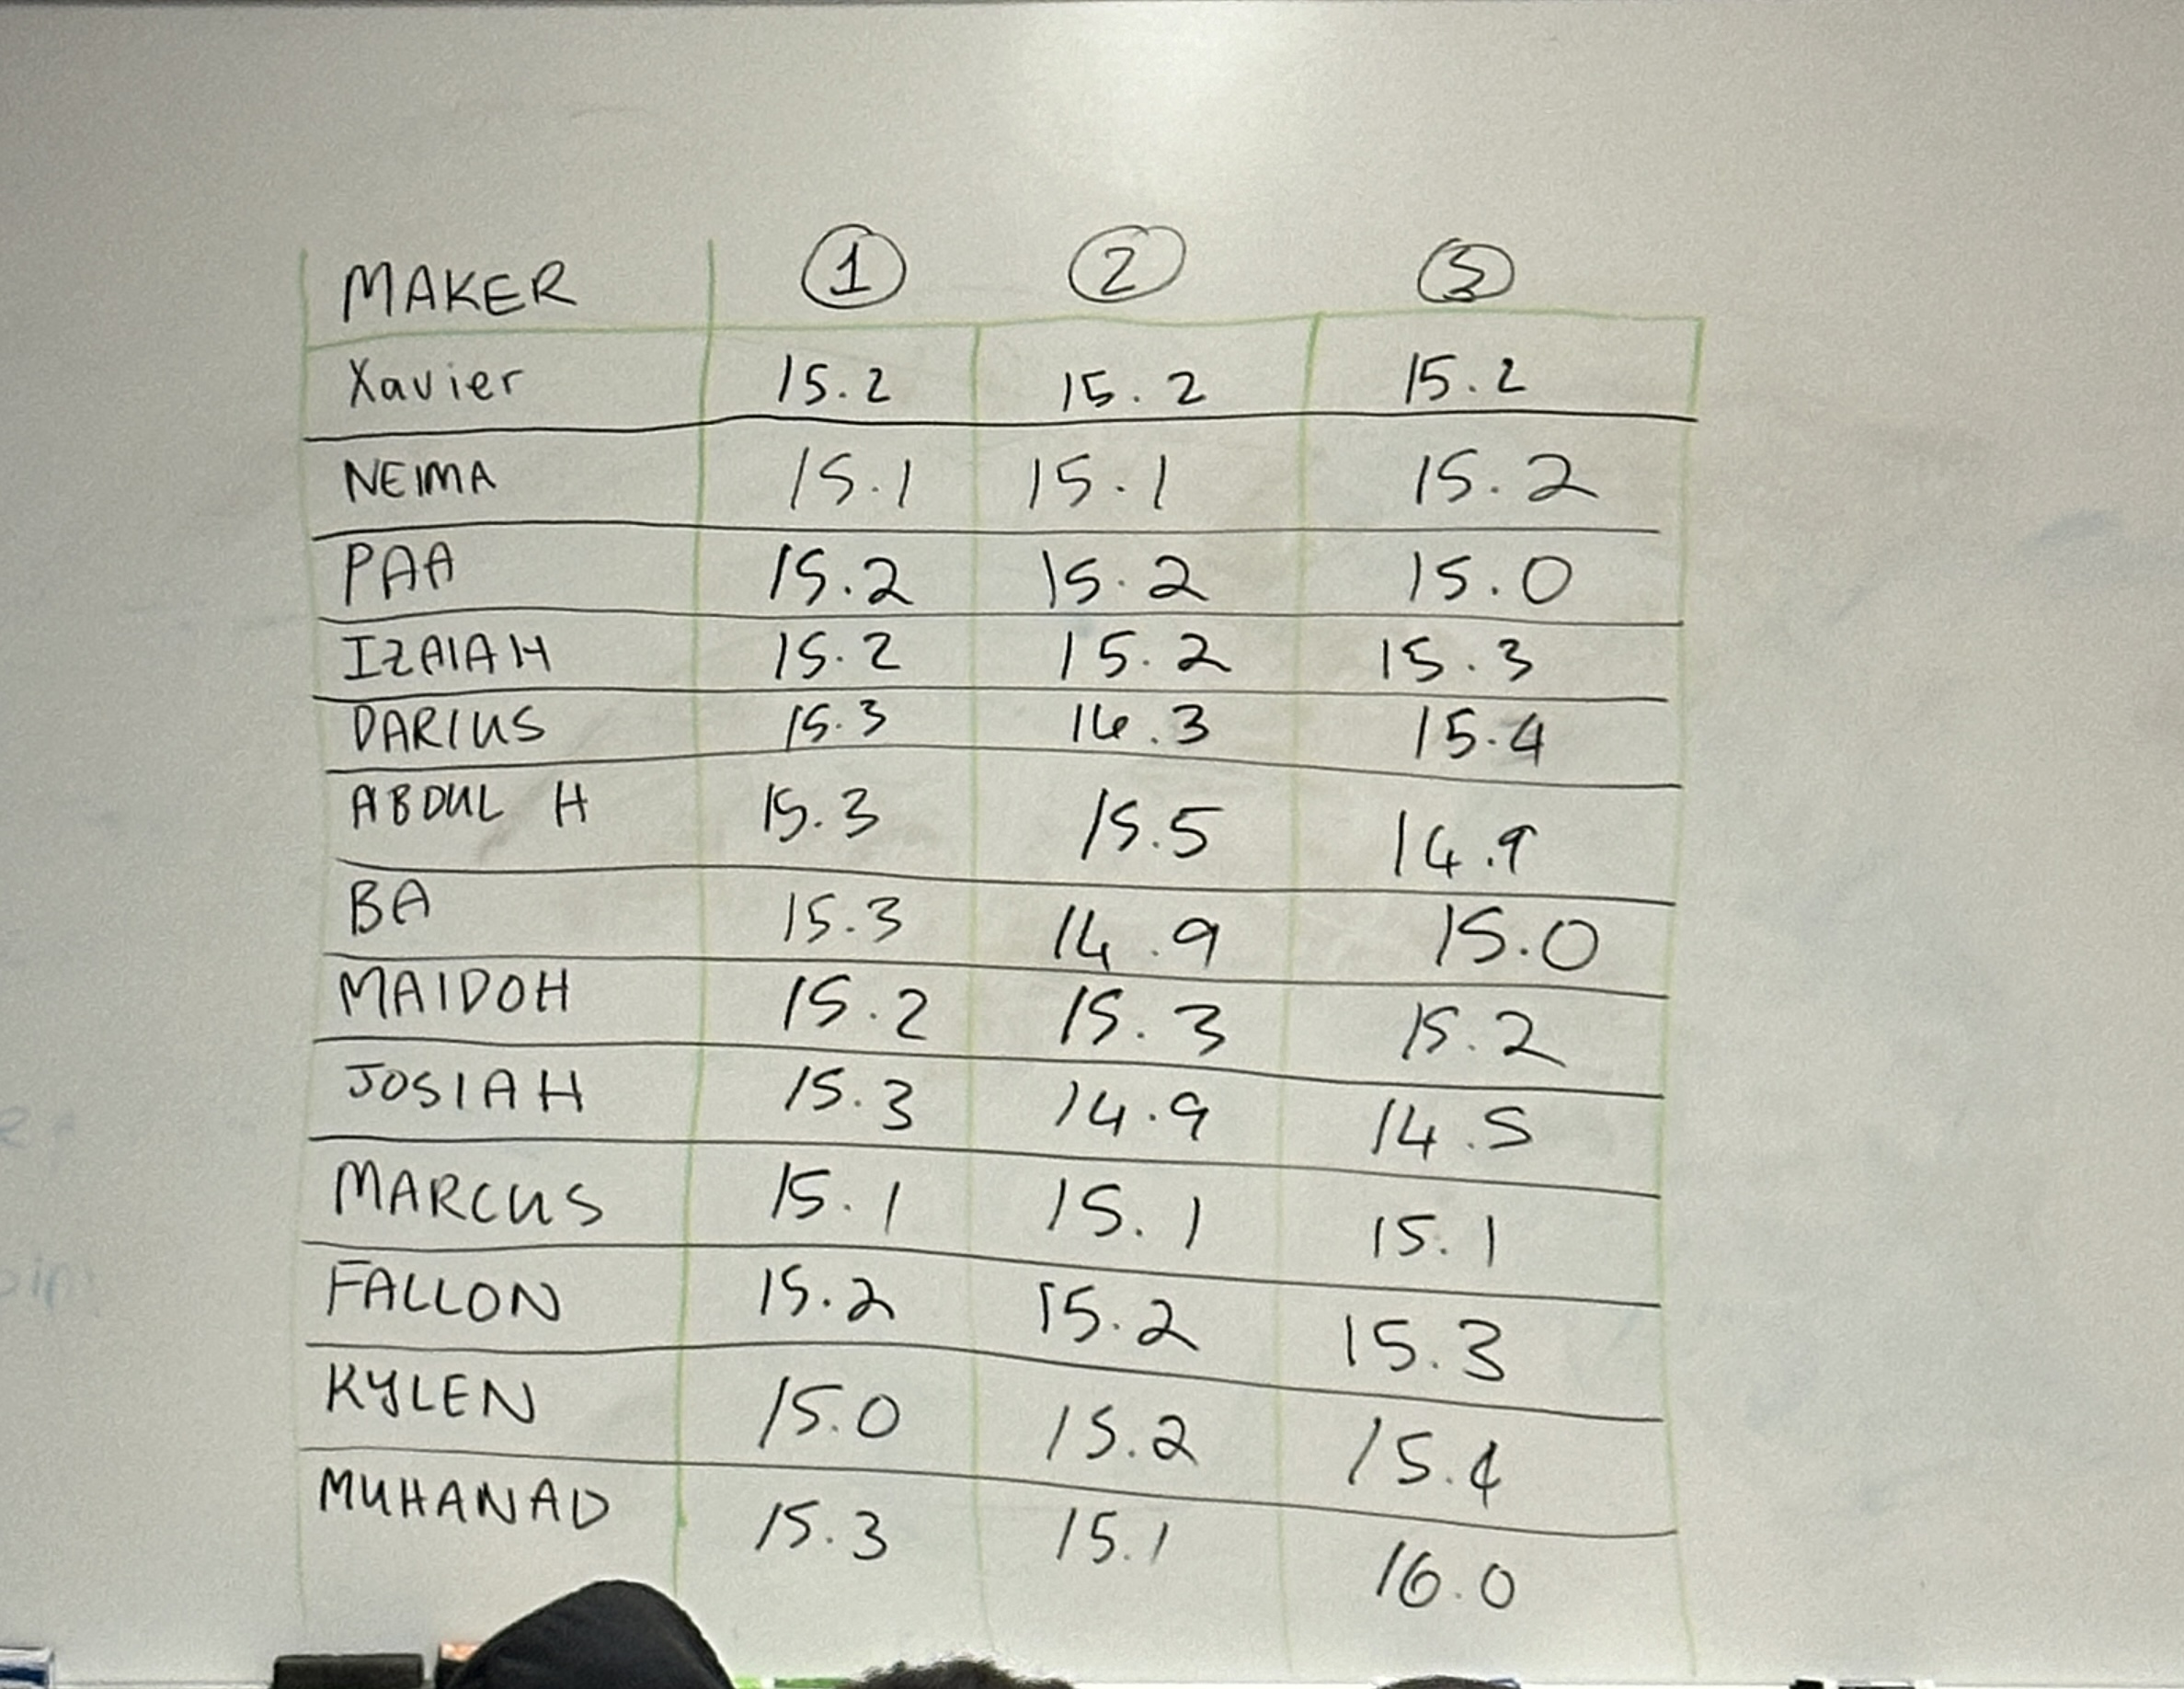 MAKER 1 2 3
Xavier 15.2 15.2 15.2
NEIMA 15.1 15.1 15.2
PAA 15.2 15.2 15.0
IZAIAH 15.2 15.2 15.3
DARIUS 15.3 16.3 15.4
ABDUL H 15.3 15.5 14.9
BA 15.3 14.9 15.0
MAIDOH 15.2 15.3 15.2
JOSIAH 15.3 14.9 14.5
MARCUS 15.1 15.1 15.1
FALLON 15.2 15.2 15.3
KYLEN 15.0 15.2 15.4
MUHANAD 15.3 15.1 16.0